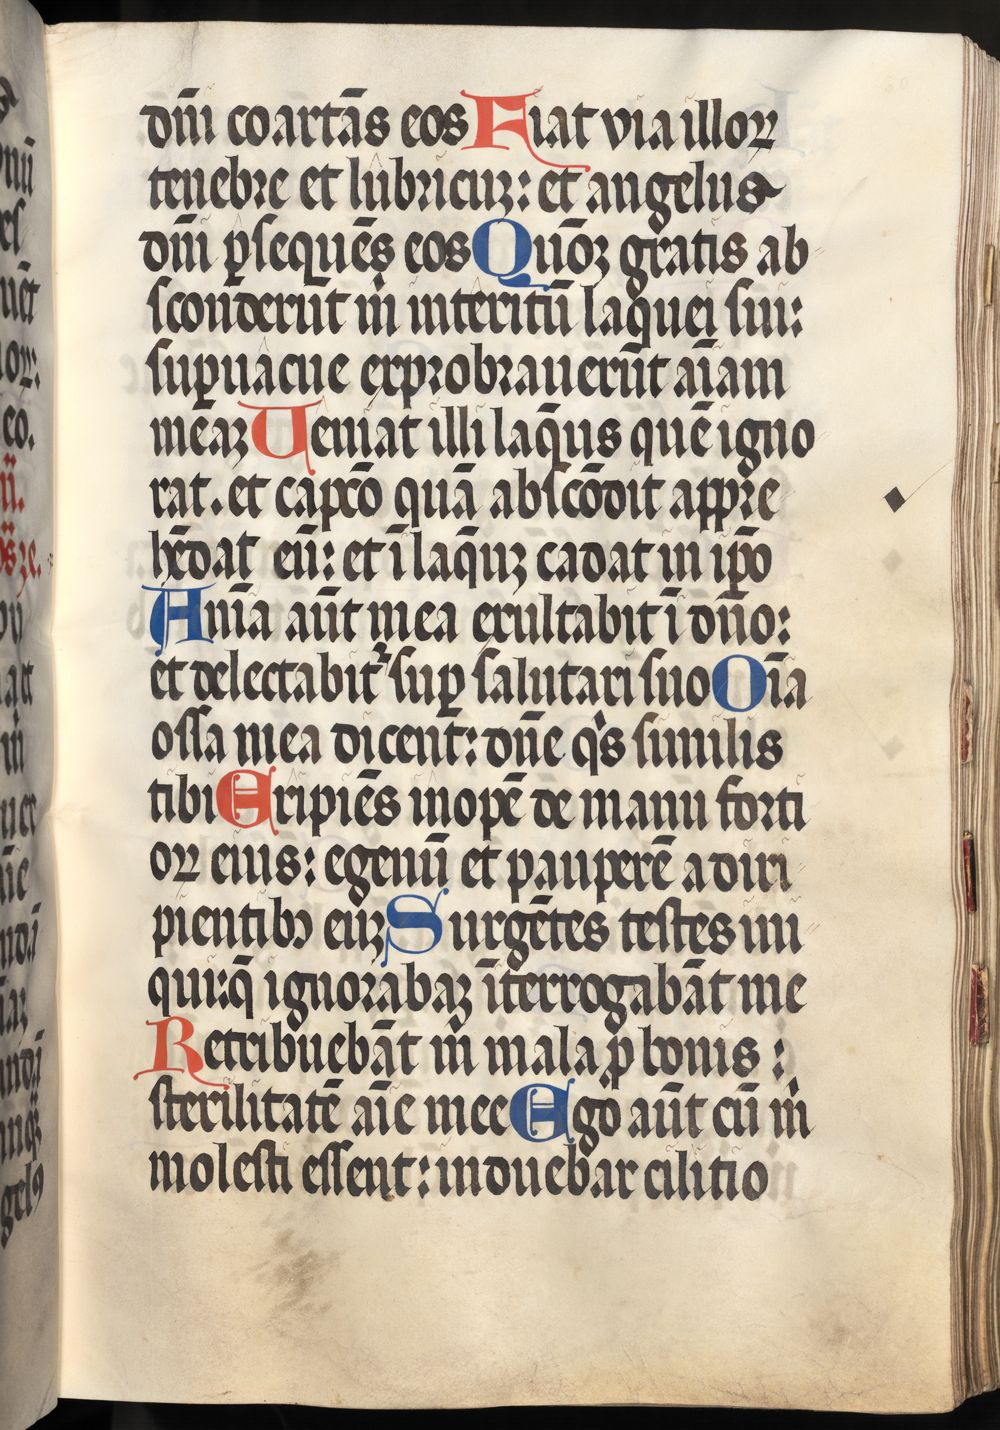 dn̄i coartās eos Fiat via illoꝝ
tenebre et lubricuꝫ: et angelus
dn̄i ꝑsequēs eos Quōꝫ gratis ab
sconderūt m̍ interitū laquei sui:
suꝑuacue exprobrauerūt aīam
mēaꝫ Ueniat illi laq̄us quē igno
rat. et capt̄o quā abscōdit appre
hēdat eū: et ī laq̄uꝫ cadat in ip̄o
Anīa aūt mea exultabit ī dn̄o:
et delectabit᷑ suꝑ salutari suo Oīa
ossa mea dicent: dn̄e qͥs similis
tibi Eripiēs inopē de manu forti
oꝝ eius: egenū et pauperē a diri
pientibꝯ eūꝫ Surgētes testes ini
qui: q̄ ignorabaꝫ īterrogabāt me
Retribuebāt m̍ mala ꝓ bonis :
sterilitatē aīe mee Ego aūt cū m̍
molesti essent: induebar cilitio